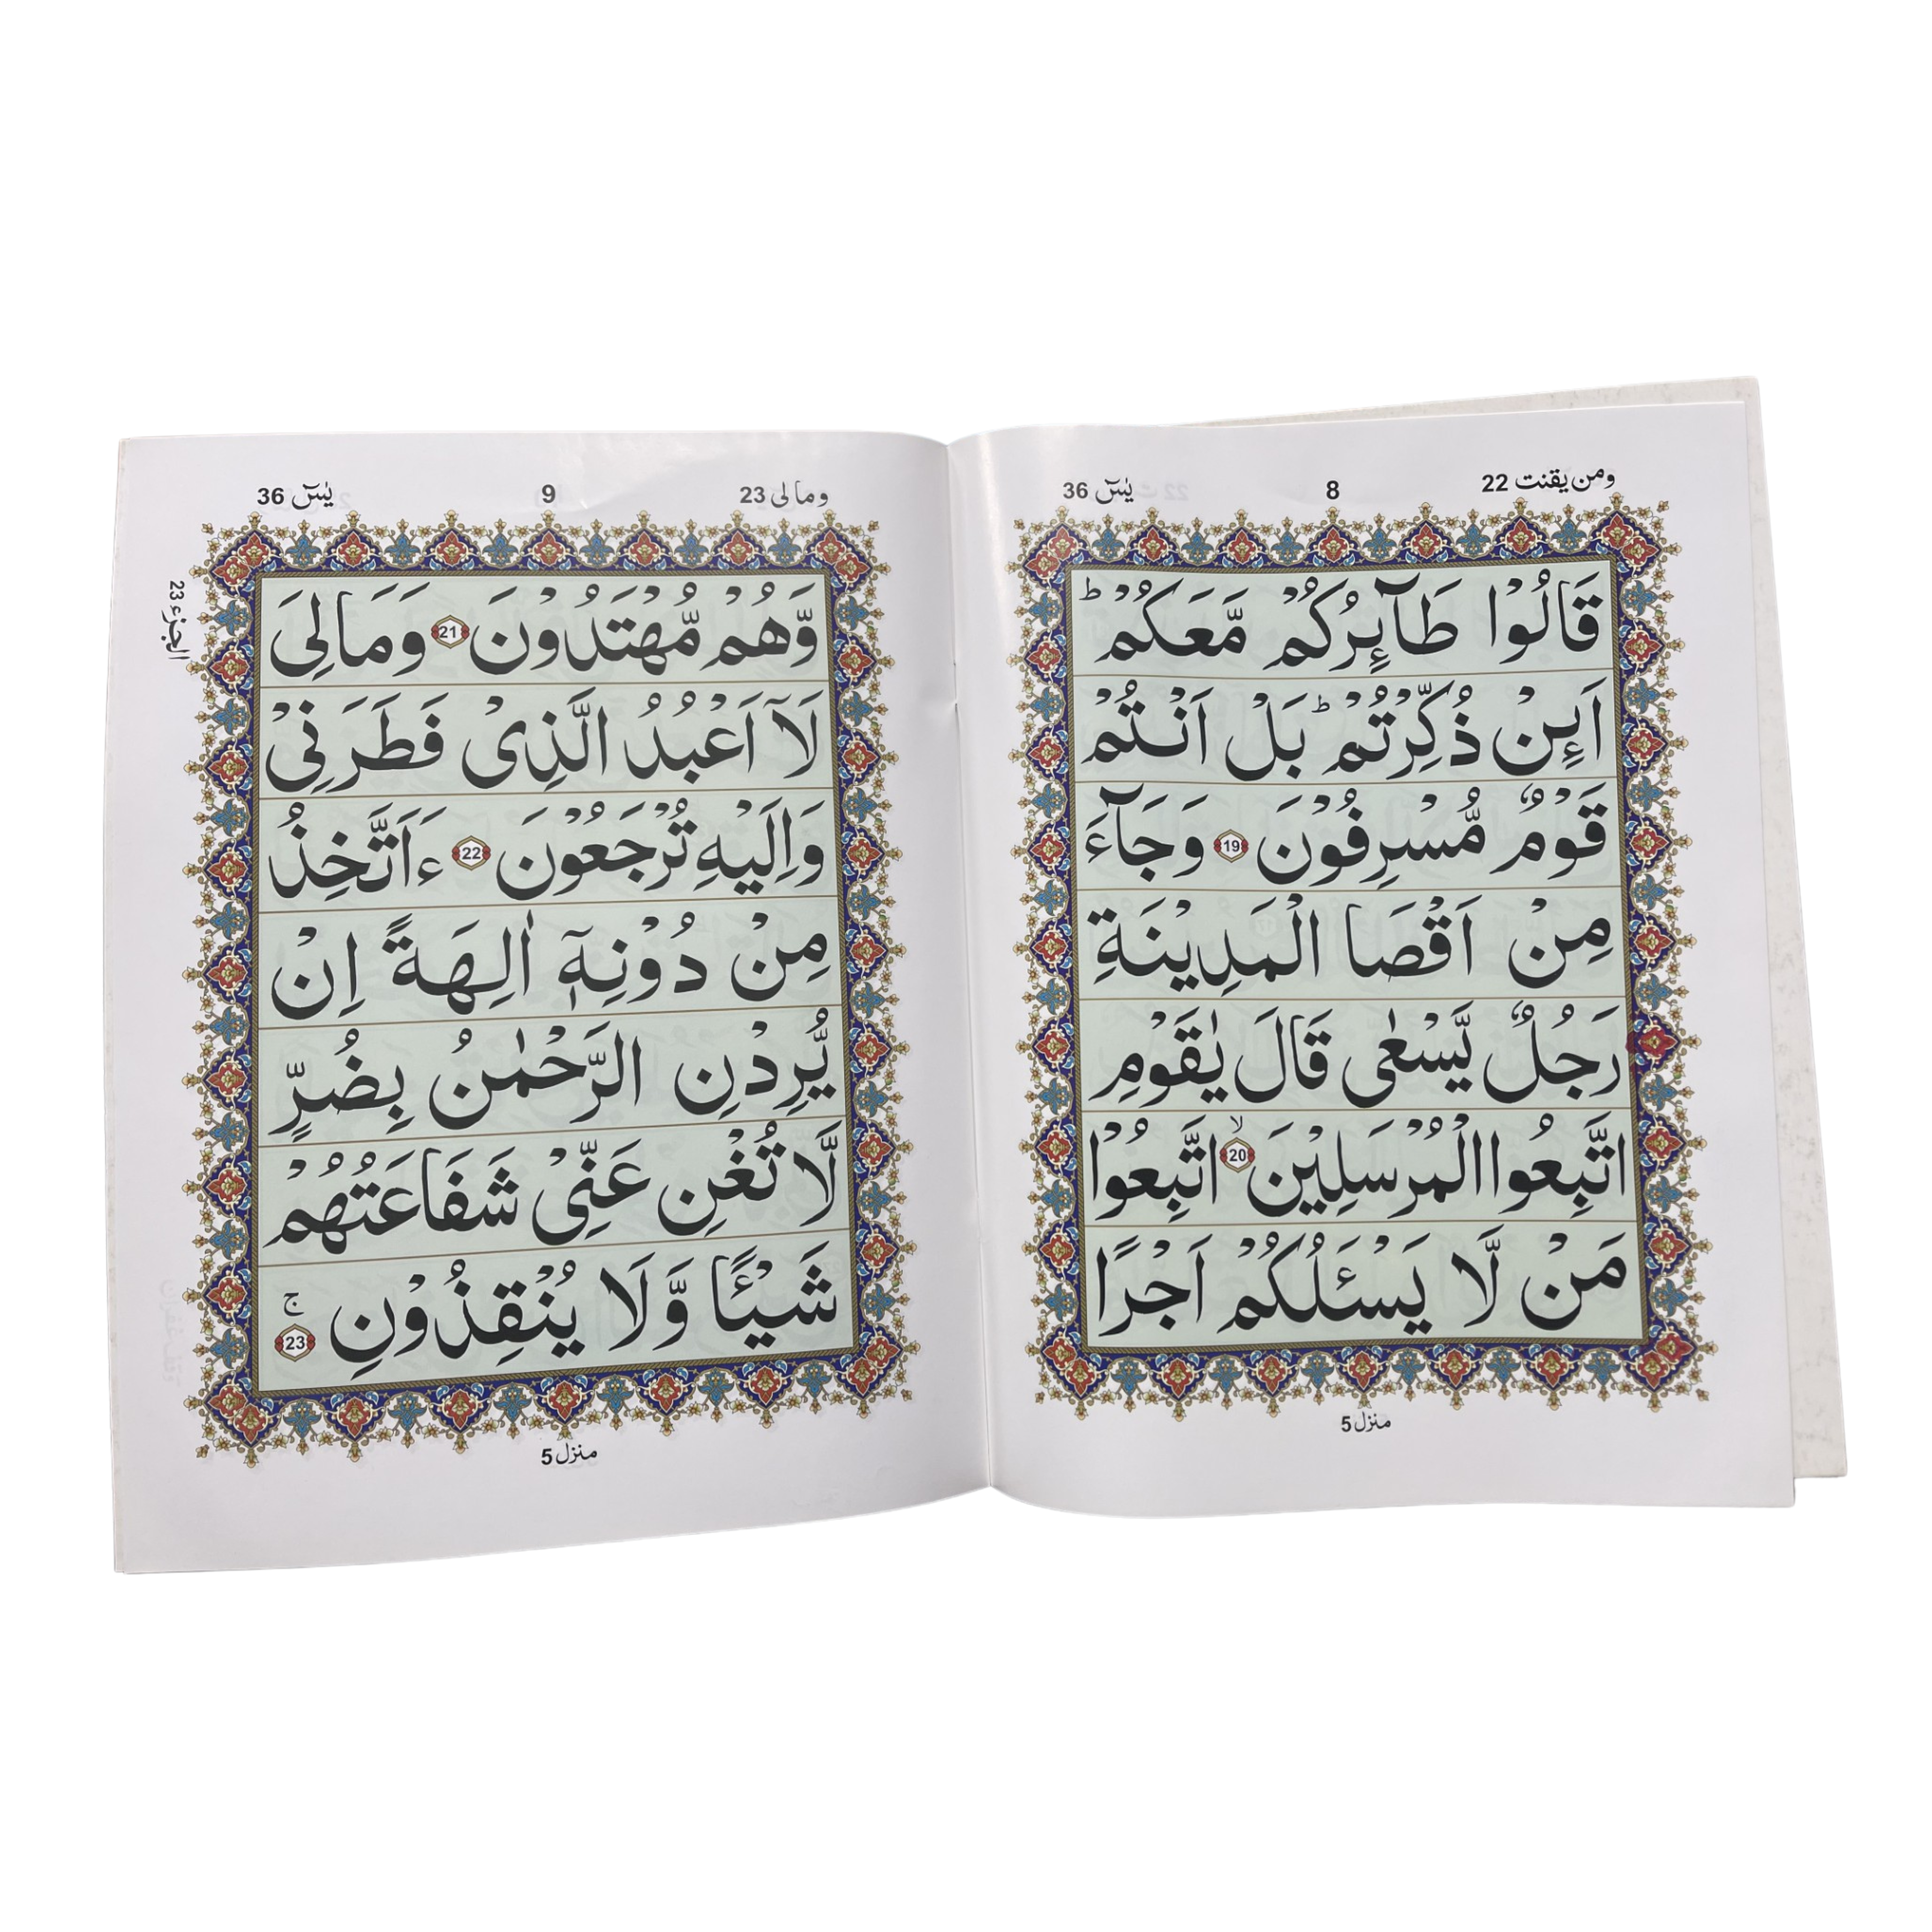 ومن يقنت 22
8
يٰسٓ 36
قَالُوْا طَآئِرُكُمْ مَّعَكُمْ ؕ
اَئِنْ ذُكِّرْتُمْ ؕ بَلْ اَنْتُمْ
قَوْمٌ مُّسْرِفُوْنَ 19 وَجَآءَ
مِنْ اَقْصَا الْمَدِيْنَةِ
رَجُلٌ يَّسْعٰى قَالَ يٰقَوْمِ
اتَّبِعُوا الْمُرْسَلِيْنَ ۙ 20 اتَّبِعُوْا
مَنْ لَّا يَسْـَٔلُكُمْ اَجْرًا
منزل 5
ومالى 23
9
يٰسٓ 36
الجزء 23
وَّهُمْ مُّهْتَدُوْنَ 21 وَمَالِىَ
لَآ اَعْبُدُ الَّذِىْ فَطَرَنِىْ
وَاِلَيْهِ تُرْجَعُوْنَ 22 ءَاَتَّخِذُ
مِنْ دُوْنِهٖٓ اٰلِهَةً اِنْ
يُّرِدْنِ الرَّحْمٰنُ بِضُرٍّ
لَّا تُغْنِ عَنِّىْ شَفَاعَتُهُمْ
شَيْـًٔا وَّلَا يُنْقِذُوْنِ ۚ 23
منزل 5